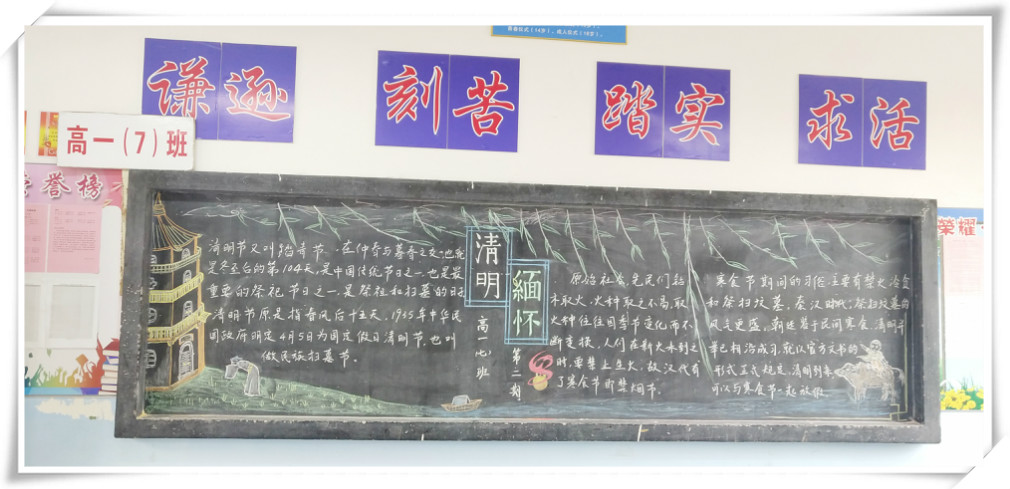 谦逊 刻苦 踏实 求活
高一(7)班
荣誉榜
荣耀
清明
缅怀
高一(七)班
第二期
清明节又叫踏青节,在仲春与暮春之交,也就
是冬至后的第104天,是中国传统节日之一,也是最
重要的祭祀节日之一,是祭祖和扫墓的日
清明节原是指春风后十五天,1935年中华民
国政府明定4月5日为国定假日清明节,也叫
做民族扫墓节。
原始社会,先民们钻
木取火,火种取之不易,取
火种往往因季节变化而不
断变换,人们在新火未到之
时,要禁止生火,故汉代有
了寒食节即禁烟节。
寒食节期间的习俗,主要有禁火冷食
和祭扫坟墓,秦汉时代,祭扫坟墓的
风气更盛,
早已相沿成习,就以官方文书的
形式正式规定,清明到来
可以与寒食节一起放假